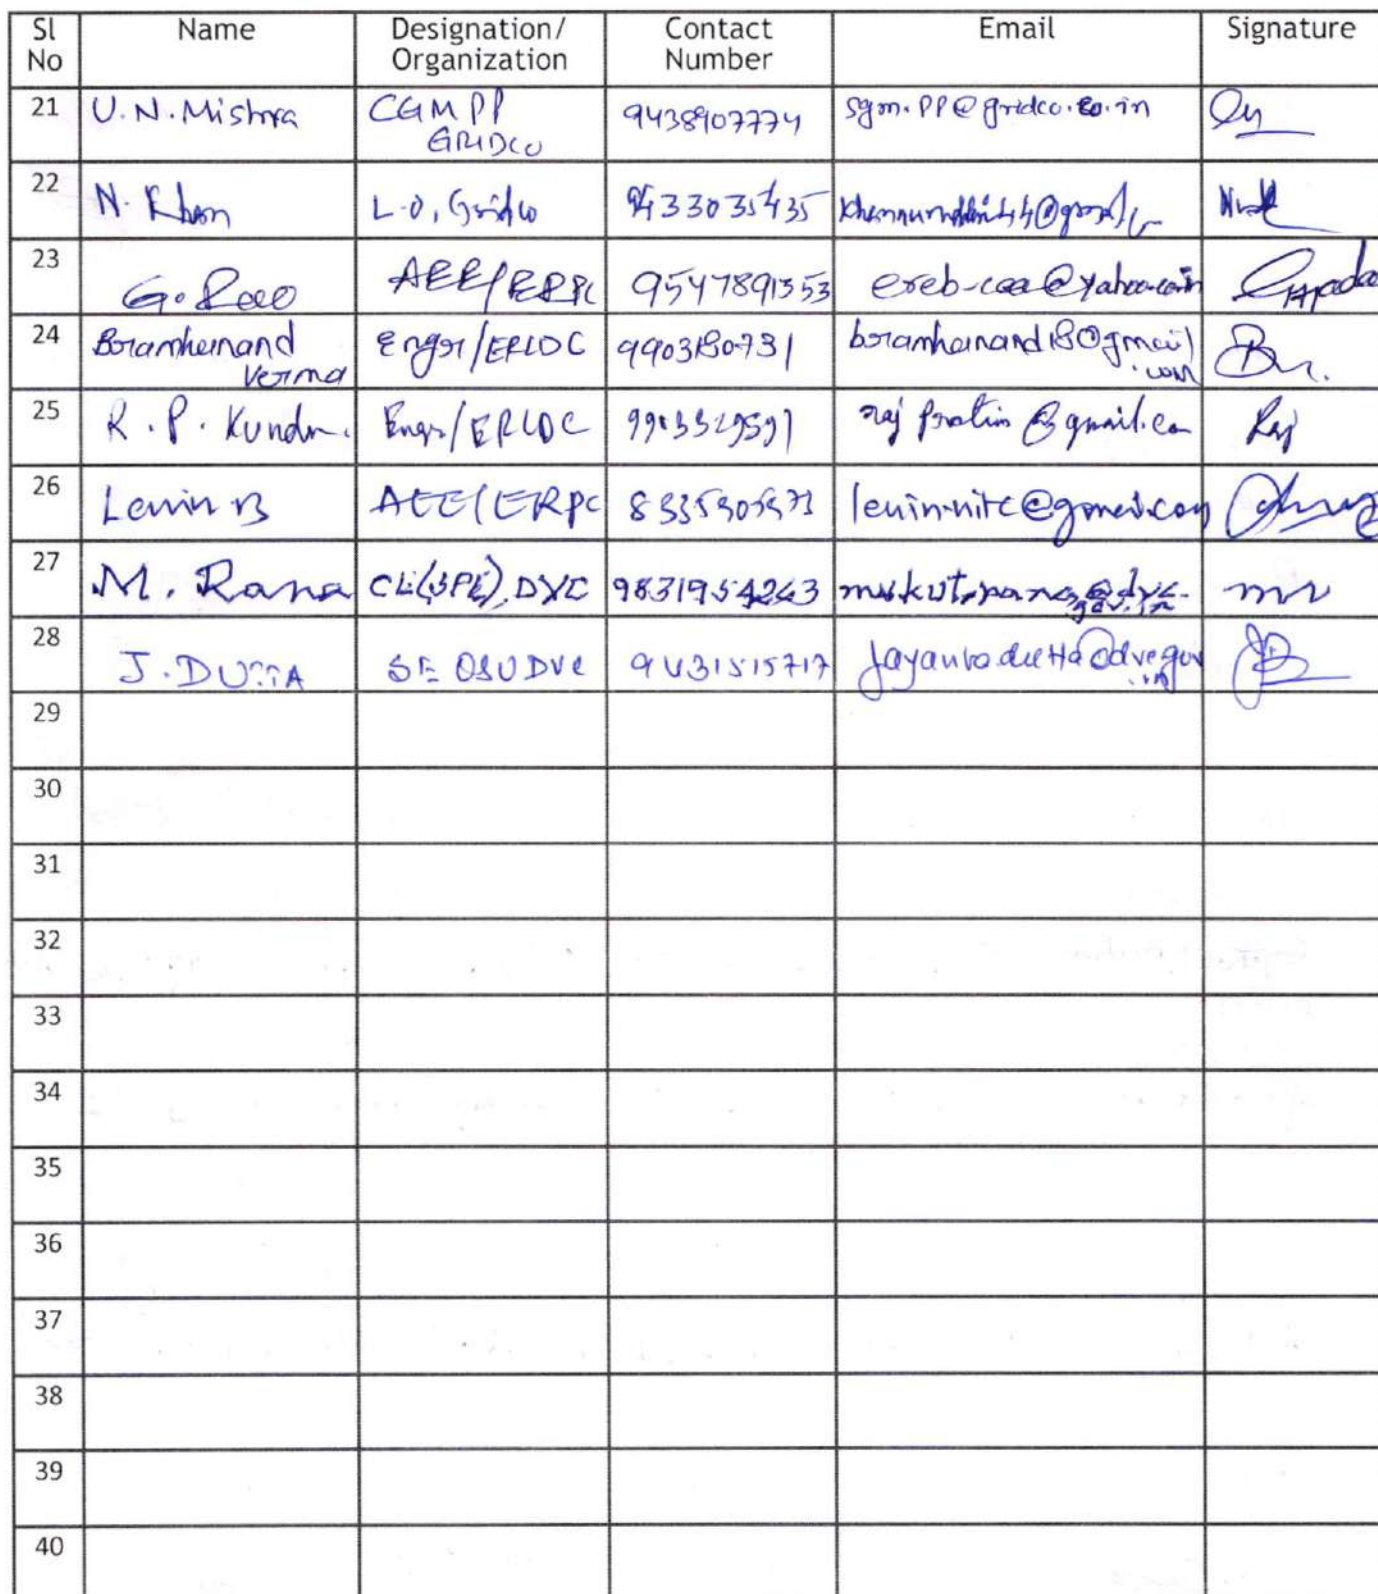 Sl No Name Designation/ Organization Contact Number Email Signature
21 U.N. Mishra CGM PP GRIDCO 9438907774 sgm.PP@gridco.co.in
22 N. Khan L.O, Gridco 9433035435
23 G. Rao AEE/ERPC 9547891353 ereb-cea@yahoo.com
24 Bramhanand Verma Engr/ERLDC 9903180731 bramhanand18@gmail.com
25 R. P. Kundu. Engr/ERLDC 9903329591 raj protim@gmail.com Raj
26 Lenin B AEE/ERPC 8335905973 lenin.nitc@gmail.com
27 M. Rana CE(SPE), DVC 9831954263 mukut.rana@dvc.gov.in
28 J. DUTTA SE OSU DVC 9431515717 jayanta.dutta@dvc.gov.in
29
30
31
32
33
34
35
36
37
38
39
40